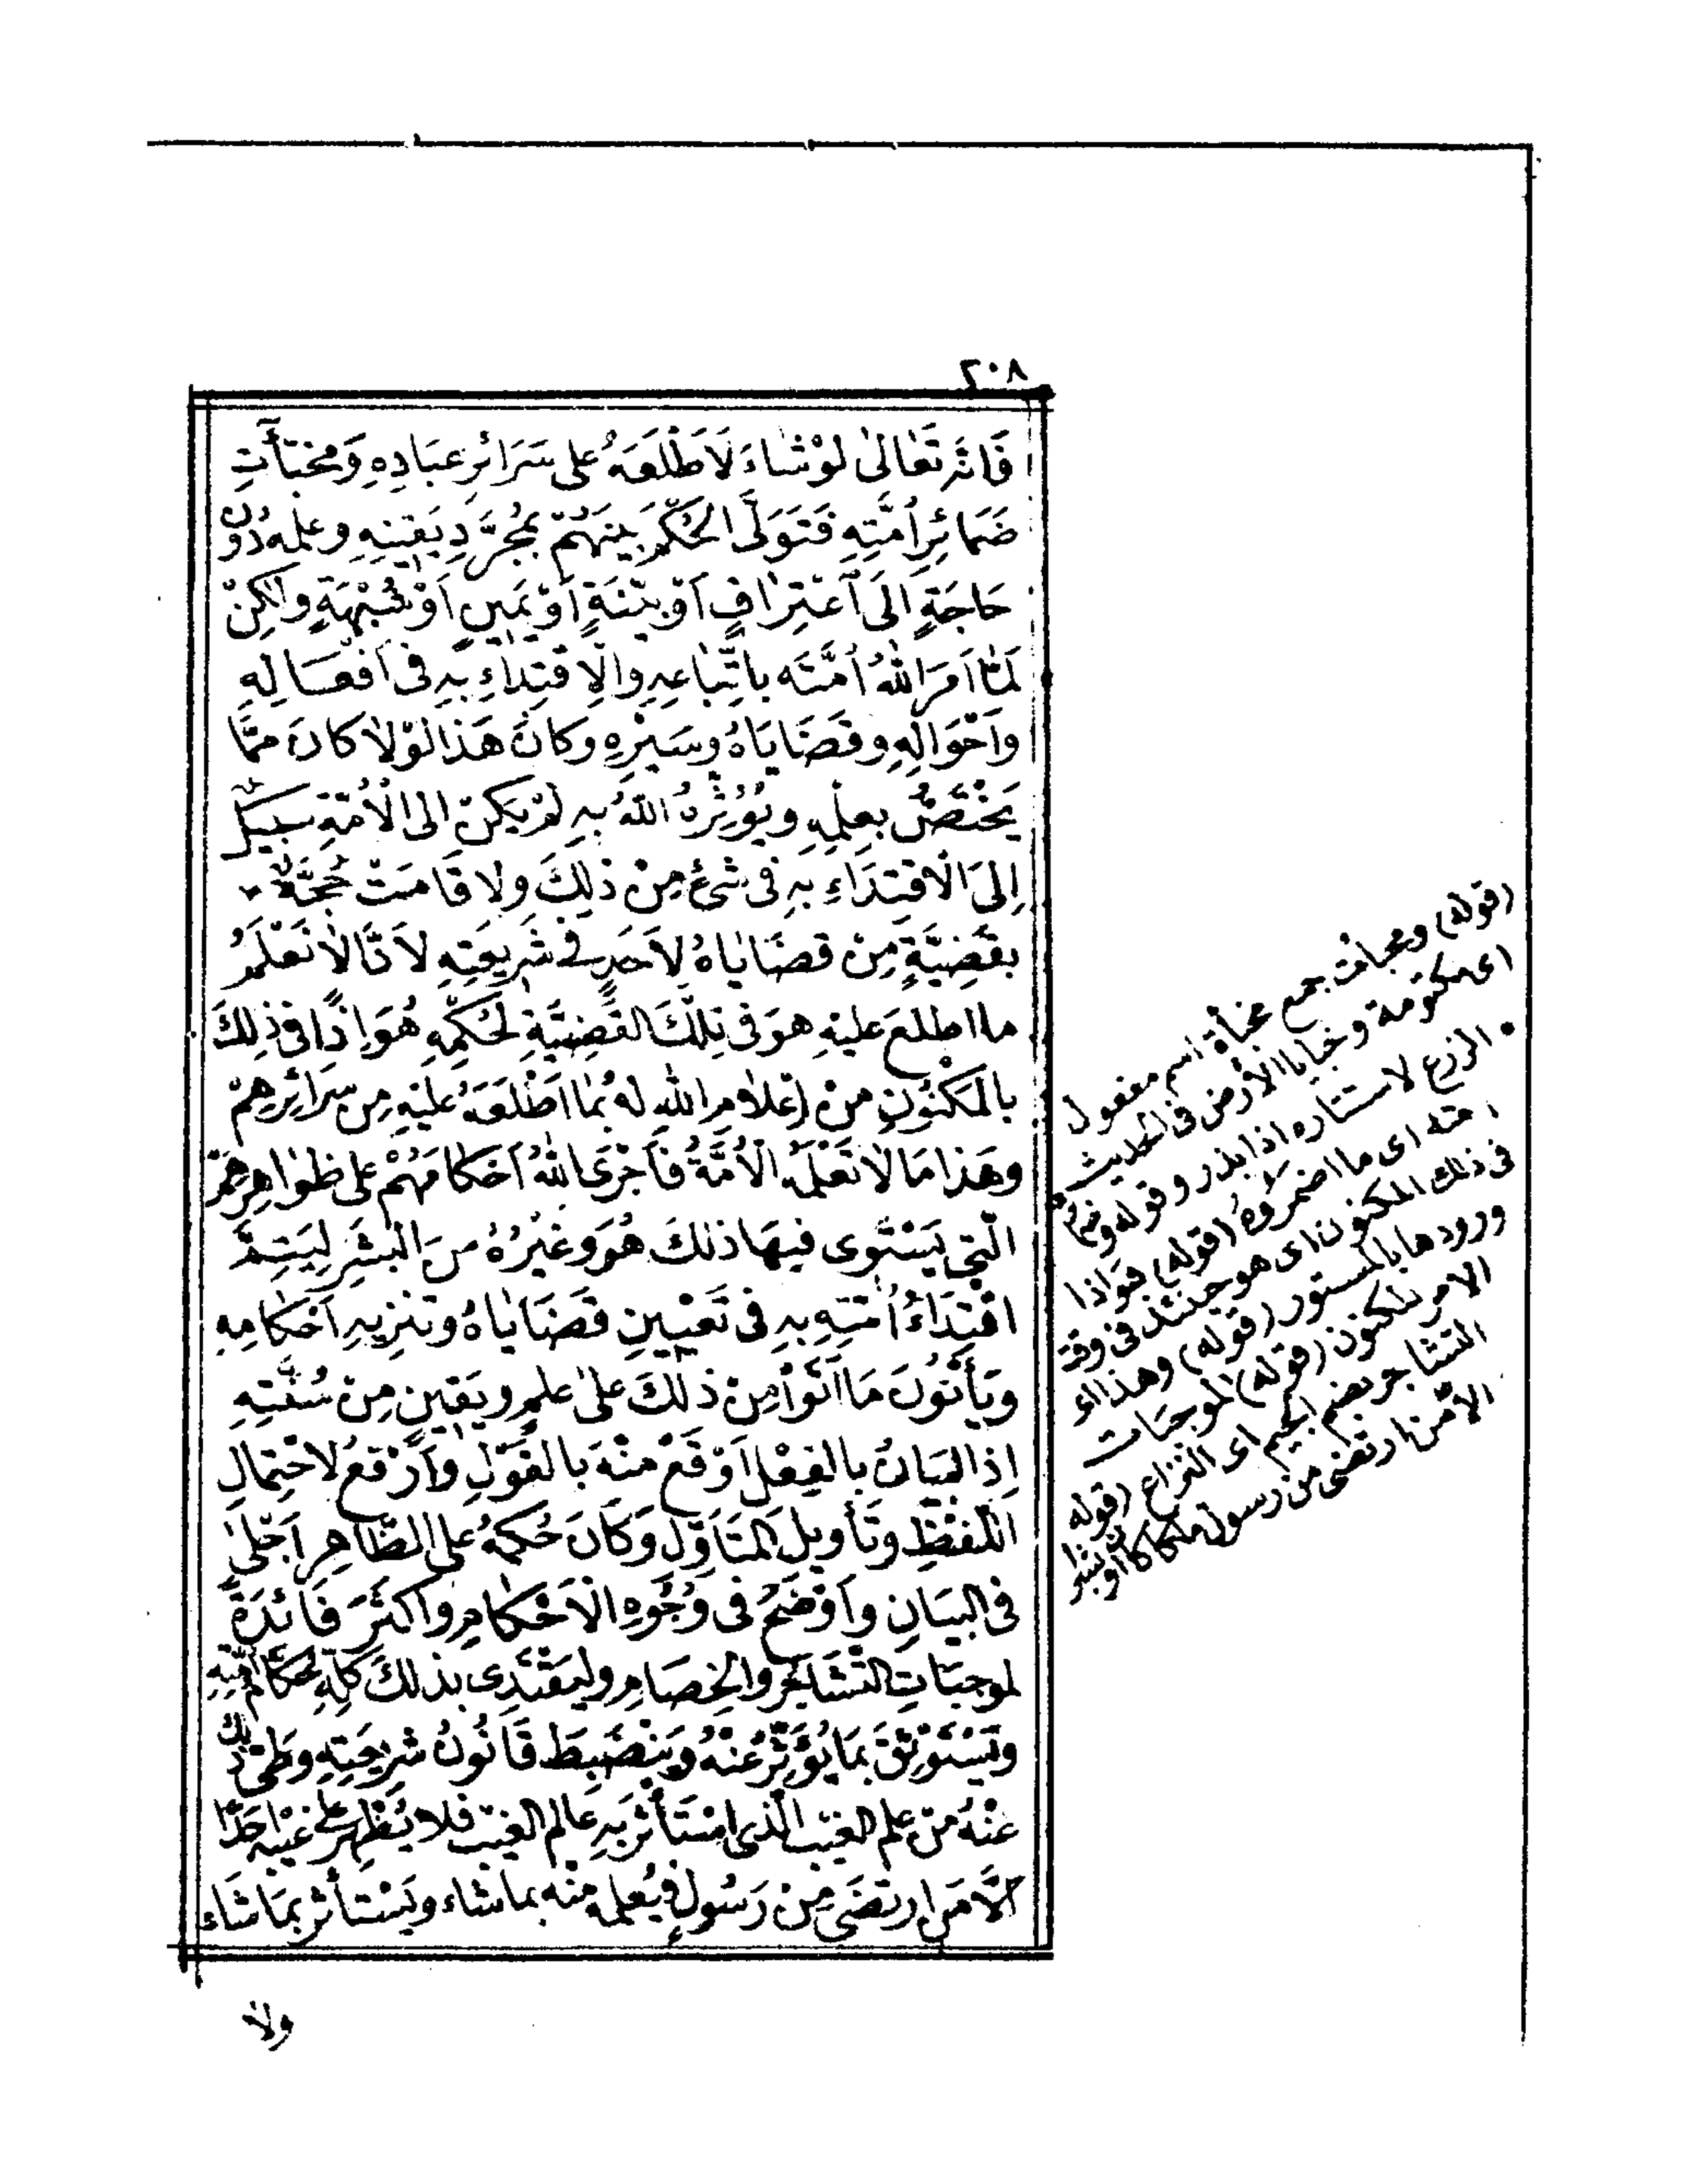 ٢٠٨
فَاِنَّهُ تَعَالىٰ لَوْ شَاءَ لَاَطْلَعَهُ عَلى سَرَائِرِ عِبَادِهِ وَمُخَبَّآتِ
ضَمَائِرِ اُمَّتِهِ فَتَوَلَّى الحُكْمَ بَيْنَهُمْ بمُجَرَّدِ يَقِينِهِ وعِلْمِهِ دُونَ
حَاجَةٍ اِلَى اعْتِرَافٍ اَوْ بَيِّنَةٍ اَوْ يَمِينٍ اَوْ شُبْهَةٍ ولٰكِنْ
لَمَّا اَمَرَ اللهُ اُمَّتَه باتِّبَاعِهِ والْاِقتِدَاءِ بِهِ فى اَفْعَالِهِ
واَحْوَالِهِ وقَضَايَاهُ وسِيَرِهِ وكَانَ هَذا لوْ لا كانَ ممَّا
يَخْتَصُّ بعِلْمِهِ ويُؤْثِرُهُ اللهُ بِهِ لَمْ يَكُنْ الى الْاُمَّةِ سَبِيلٌ
اِلىَ الْاقتِدَاءِ بِهِ فى شىْءٍ مِنْ ذلِكَ ولا قَامَتْ حُجَّةٌ
بقَضِيَّةٍ مِنْ قضَايَاهُ لِاَحَدٍ فى شَرِيعَتِهِ لاَنَّا لَا نَعْلَمُ
ما اطلعَ عليْهِ هوَ فى تِلْكَ القَضِيَّةِ لحُكْمِهِ هُوَ اِذًا فى ذلِكَ
بالمَكْنُونِ مِنْ اِعْلامِ اللهِ لهُ بمَا اَطْلَعَهُ عليْهِ مِن سَرَائِرِهِمْ
وهَذا مَا لَا تَعْلَمُهُ الْاُمَّةُ فاَجْرَى اللهُ اَحْكامَهُمْ على ظوَاهِرِهِمْ
الّتِى يَسْتَوِى فيهَا ذلكَ هُوَ وغَيْرُهُ منَ البَشَرِ لِيَتِمَّ
اقْتِدَاءُ اُمَّتِهِ بِهِ فى تَعْيِينِ قَضَايَاهُ وتنزيهِ اَحْكامِهِ
ويَأْتُونَ مَا اَتَوْا مِنْ ذلِكَ عَلىٰ علمٍ ويَقِينٍ مِنْ سُنَّتِهِ
اِذِ البَيَانُ بالفِعْلِ اَوْقَعُ مِنْهُ بالقَوْلِ واَرْفَعُ لاحْتِمالِ
اللفْظِ وتَأويلِ المتَاَوِّلِ وكَانَ حُكْمُهُ على الظّاهِرِ اَجْلىٰ
فى البيَانِ واَوْضَحُ فى وُجُوهِ الْاَحْكامِ واَكثرَ فَائدَةً
لموجِبَاتِ التَّشَاجُرِ والخِصَامِ وليَقْتَدِى بذلكَ كلِّهِ حُكّامُ اُمَّتِهِ
ويَسْتَوثِقَ بمَا يُؤْثَرُ عَنْهُ ويَنْضَبِطَ قَانُونُ شَرِيعَتِهِ وطَىُّ ذلِكَ
عَنْهُ مِنْ علمِ الغيْبِ الّذى اسْتَأثَرَ بِهِ عَالمُ الغيْبِ فلا يُظْهِرُ عَلىٰ غيْبِهِ اَحَدًا
الّا مَنِ ارتضَى مِنْ رَسُولٍ فيُعلمه منْه بماشاء ويَسْتأثر بمَا شَاء
ولا
(قوله) ومخبآت جمع مخبأة اسم مفعول
اى مكتومة وخبايا الأرض فى الحديث
الزرع لاستتاره اذا بذر وقوله وضمائر
امته اى ما اضمروه (قوله) هو اذا
فى ذلك المكنون اى هو حينئذ فى وقت
ورودها بالمستور (قوله) وهذا اى
الامر المكنون (قوله) لموجبات
التشاجر بضم الجيم اى النزاع (قوله
الا من ارتضى من رسول ملكا كان او بشرا